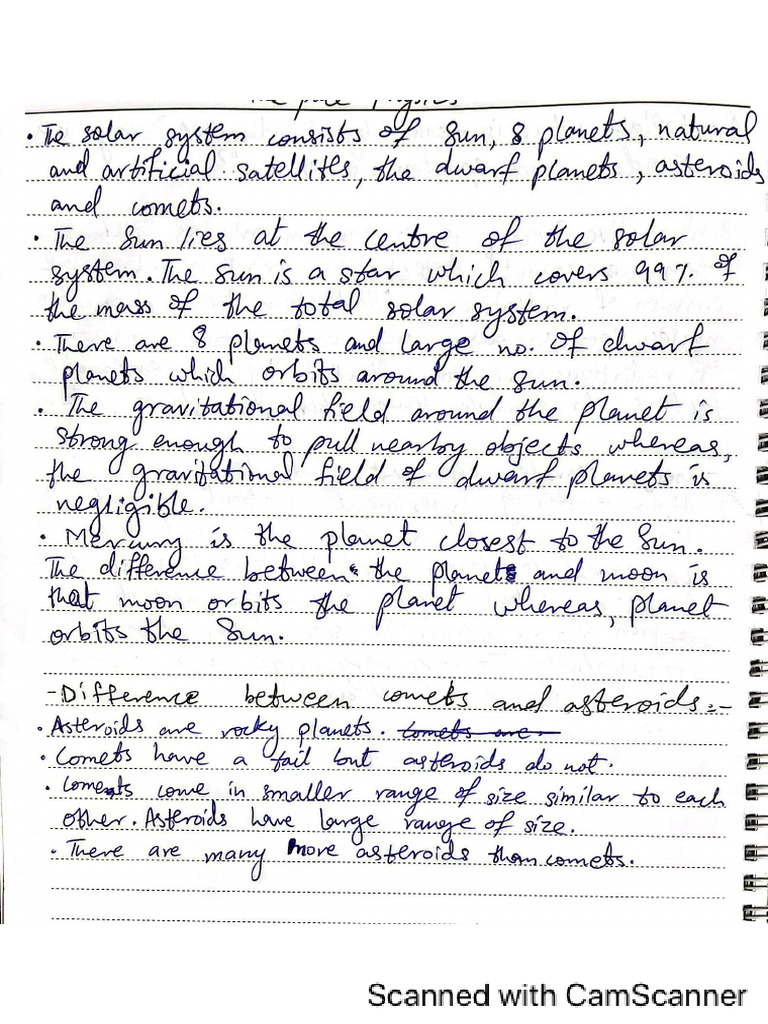 Physics
• The solar system consists of Sun, 8 planets, natural
and artificial satellites, the dwarf planets, asteroids
and comets.
• The Sun lies at the centre of the solar
system. The sun is a star which covers 99% of
the mass of the total solar system.
• There are 8 planets and large no. of dwarf
planets which orbits around the Sun.
• The gravitational field around the planet is
strong enough to pull nearby objects whereas,
the gravitational field of dwarf planets is
negligible.
• Mercury is the planet closest to the Sun.
The difference between the planets and moon is
that moon orbits the planet whereas, planet
orbits the Sun.
- Difference between comets and asteroids:-
• Asteroids are rocky planets. Comets are
• Comets have a tail but asteroids do not.
• Comets come in smaller range of size similar to each
other. Asteroids have large range of size.
• There are many more asteroids than comets.
Scanned with CamScanner